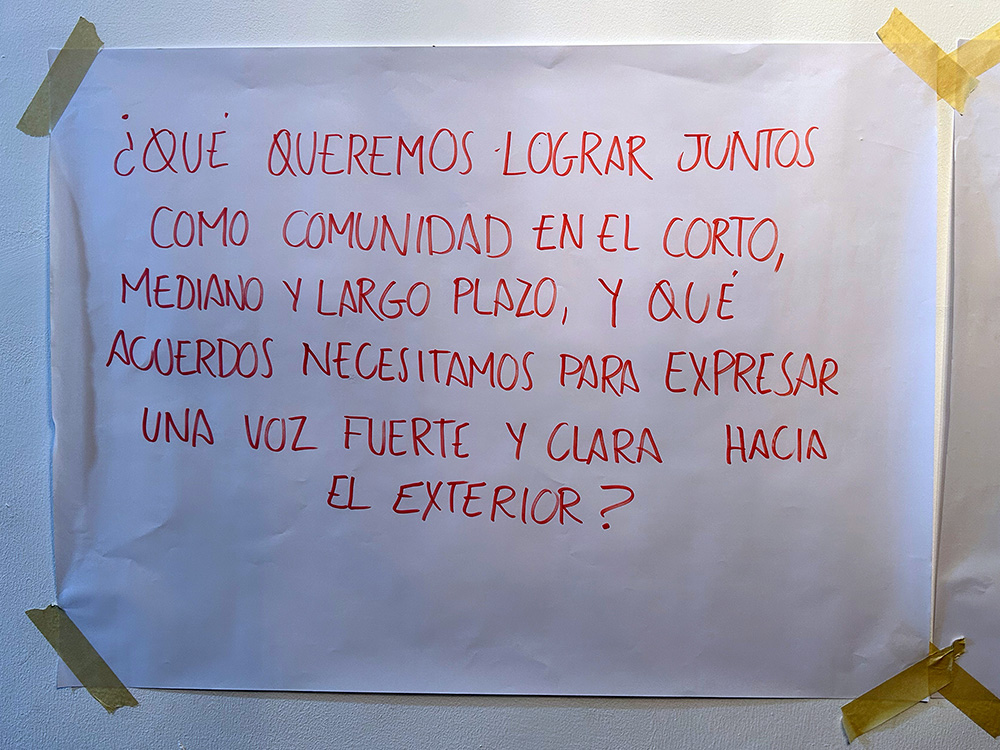 ¿QUÉ QUEREMOS LOGRAR JUNTOS
COMO COMUNIDAD EN EL CORTO,
MEDIANO Y LARGO PLAZO, Y QUÉ
ACUERDOS NECESITAMOS PARA EXPRESAR
UNA VOZ FUERTE Y CLARA HACIA
EL EXTERIOR?